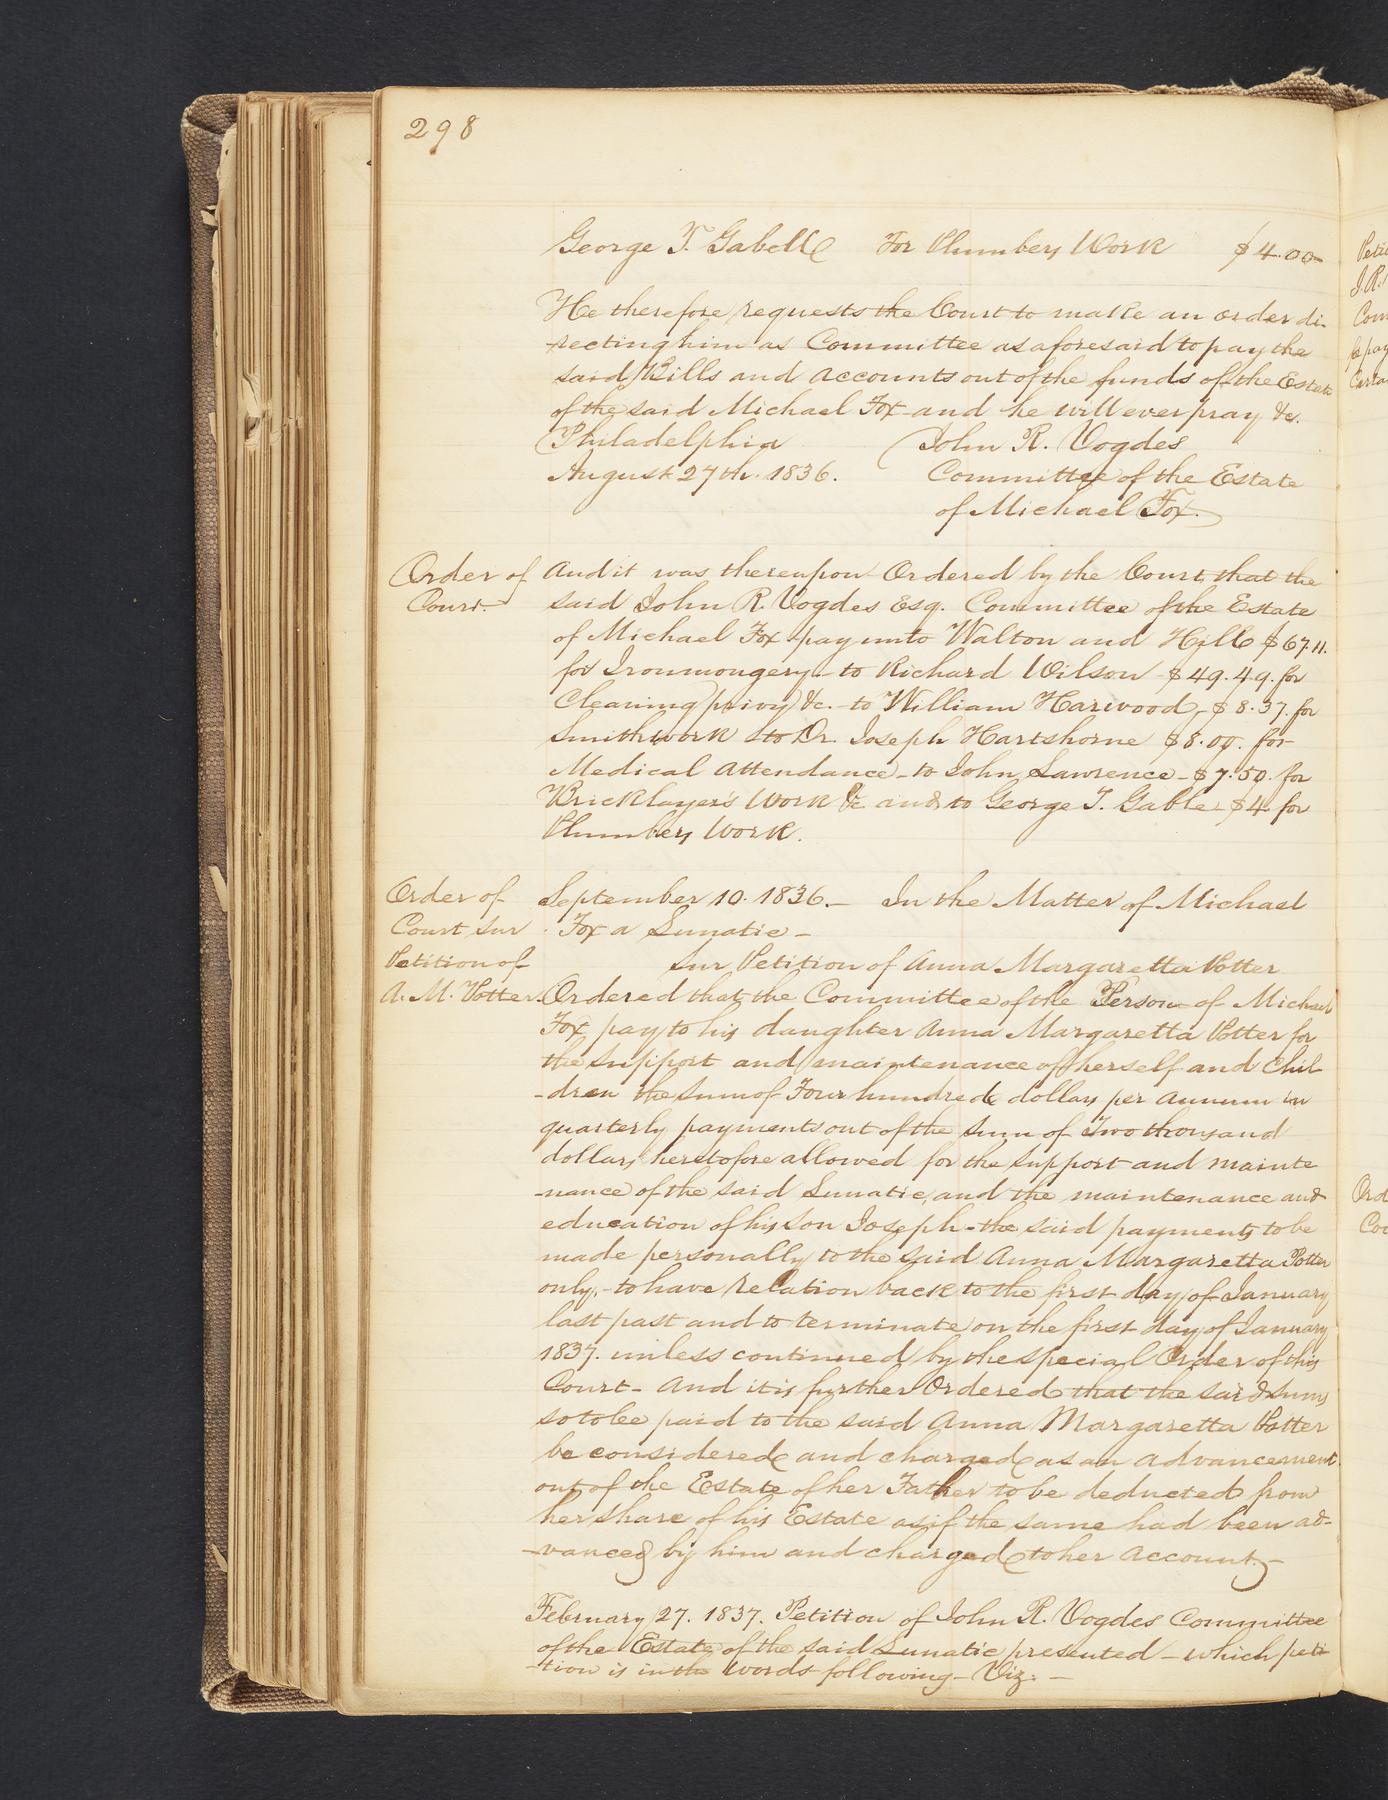 298
George T. Gabell For Plumbers Work $4.00
He therefore requests the Court to make an order di-
-recting him as Committee as aforesaid to pay the
said Bills and accounts out of the funds of the Estate
of the said Michael Fox and he will ever pray &c.
Philadelphia John R. Vogdes
August 27th. 1836. Committee of the Estate
of Michael Fox.
Order of And it was thereupon Ordered by the Court, that the
Court. said John R. Vogdes Esq. Committee of the Estate
of Michael Fox pay unto Walton and Hill $67.11.
for Ironmongery - to Richard Wilson - $49.49. for
Cleaning privy &c. - to William Harwood - $8.37. for
Smithwork to Dr. Joseph Hartshorne $8.00. for
Medical Attendance - to John Lawrence - $7.50. for
Bricklayer's Work &c and to George T. Gable - $4 for
Plumbers Work.
Order of September 10. 1836. - In the Matter of Michael
Court sur Fox a Lunatic -
Petition of sur Petition of Anna Margaretta Potter
A. M. Potter. Ordered that the Committee of the Person of Michael
Fox pay to his daughter Anna Margaretta Potter for
the support and maintenance of herself and Chil
-dren the sum of Four hundred dollars per annum in
quarterly payments out of the sum of Two thousand
dollars heretofore allowed for the support and mainte
-nance of the said Lunatic, and the maintenance and
education of his son Joseph - the said payments to be
made personally to the said Anna Margaretta Potter
only, - to have relation back to the first day of January
last past and to terminate on the first day of January
1837. unless continued by the special Order of this
Court - And it is further Ordered that the said sums
so to be paid to the said Anna Margaretta Potter
be considered and charged as an advancement
out of the Estate of her Father to be deducted from
her share of his Estate as if the same had been ad-
-vanced by him and charged to her account. -
February 27. 1837. Petition of John R. Vogdes Committee
of the Estate of the said Lunatic presented - which peti
-tion is in the words following - Viz: -